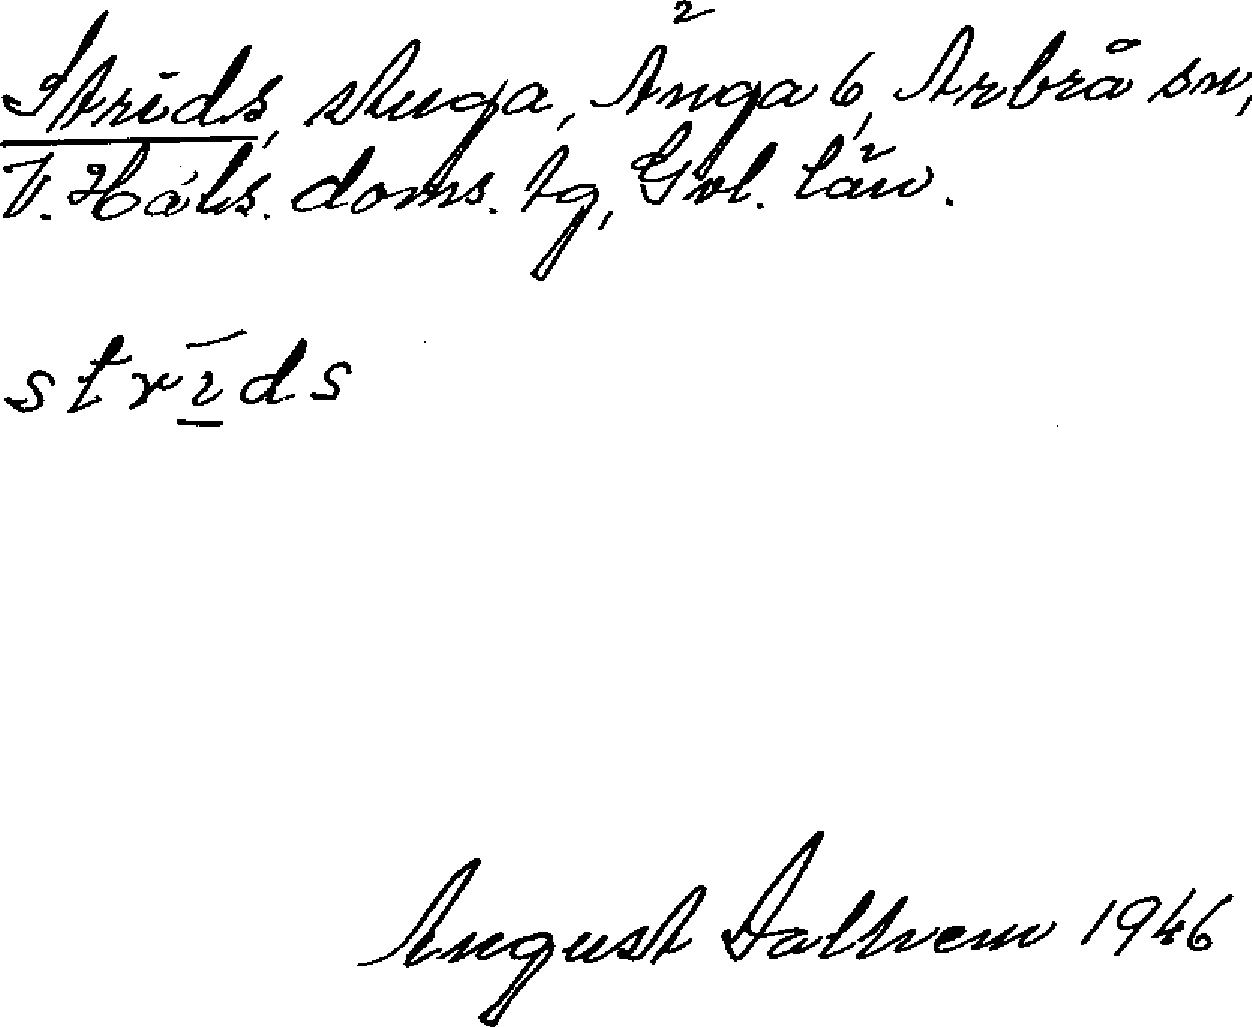 Strids, stuga, Änga 6, Arbrå sn,
V. Häls. doms. tg, Gvl. län.
strīds
August Dalhem 1946